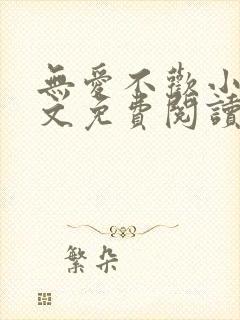 無愛不歡小
文免費閱讀
繁朵